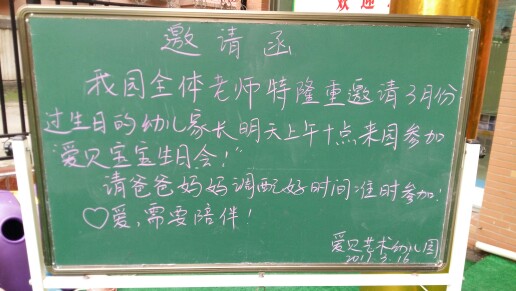 欢迎
邀请函
我园全体老师特隆重邀请3月份
过生日的幼儿家长明天上午十点来园参加
"爱贝宝宝生日会!"
请爸爸妈妈调配好时间准时参加!
♡爱,需要陪伴!
爱贝艺术幼儿园